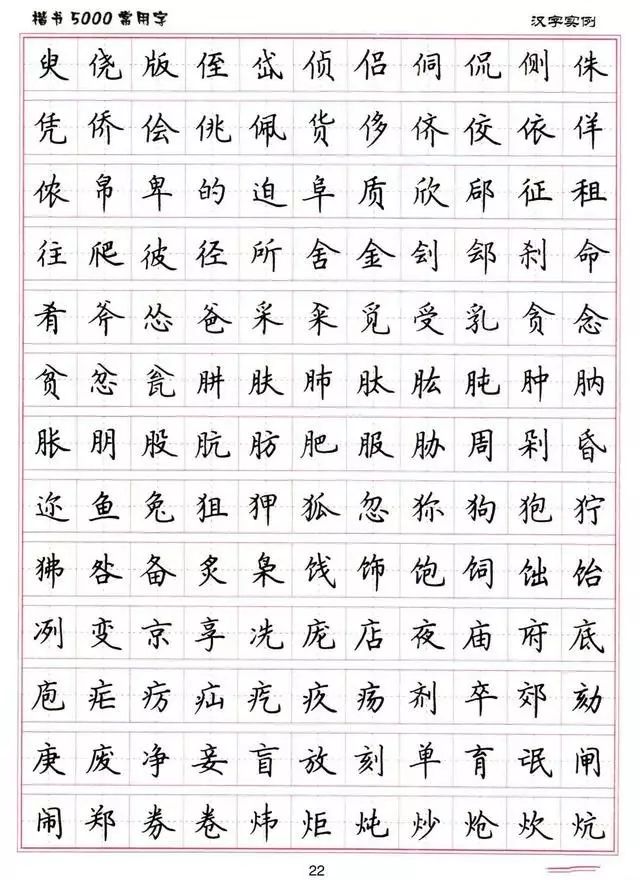 楷书5000常用字
汉字实例
臾侥版侄岱侦侣侗侃侧侏
凭侨侩佻佩货侈侪佼依佯
侬帛卑的迫阜质欣郈征租
往爬彼径所舍金刽郐刹命
肴斧怂爸采籴觅受乳贪念
贫忿瓮肼肤肺肽肱肫肿肭
胀朋股肮肪肥服胁周剁昏
迩鱼兔狙狎狐忽狝狗狍狞
狒咎备炙枭饯饰饱饲饳饴
冽变京享冼庞店夜庙府底
庖疟疠疝疙疚疡剂卒郊劾
庚废净妾盲放刻单育氓闸
闹郑券卷炜炬炖炒炝炊炕
22